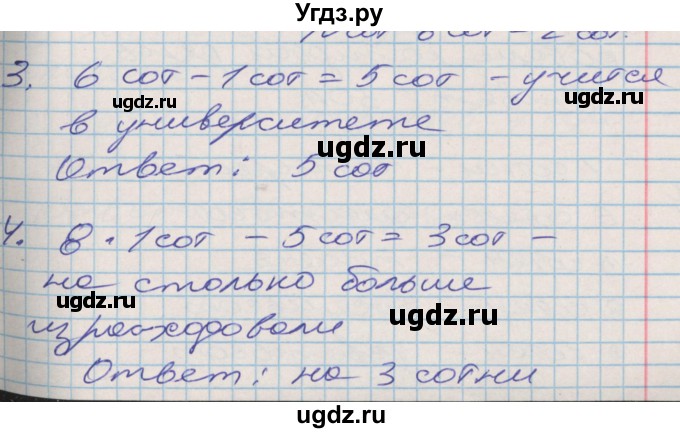 Угдз.ру
3. 6 сот - 1 сот = 5 сот - учится
в университете
Ответ: 5 сот
4. 8 · 1 сот - 5 сот = 3 сот -
на столько больше
израсходовали
Ответ: на 3 сотни
ugdz.ru
ugdz.ru
ugdz.ru
ugdz.ru
ugdz.ru
ugdz.ru
ugdz.ru